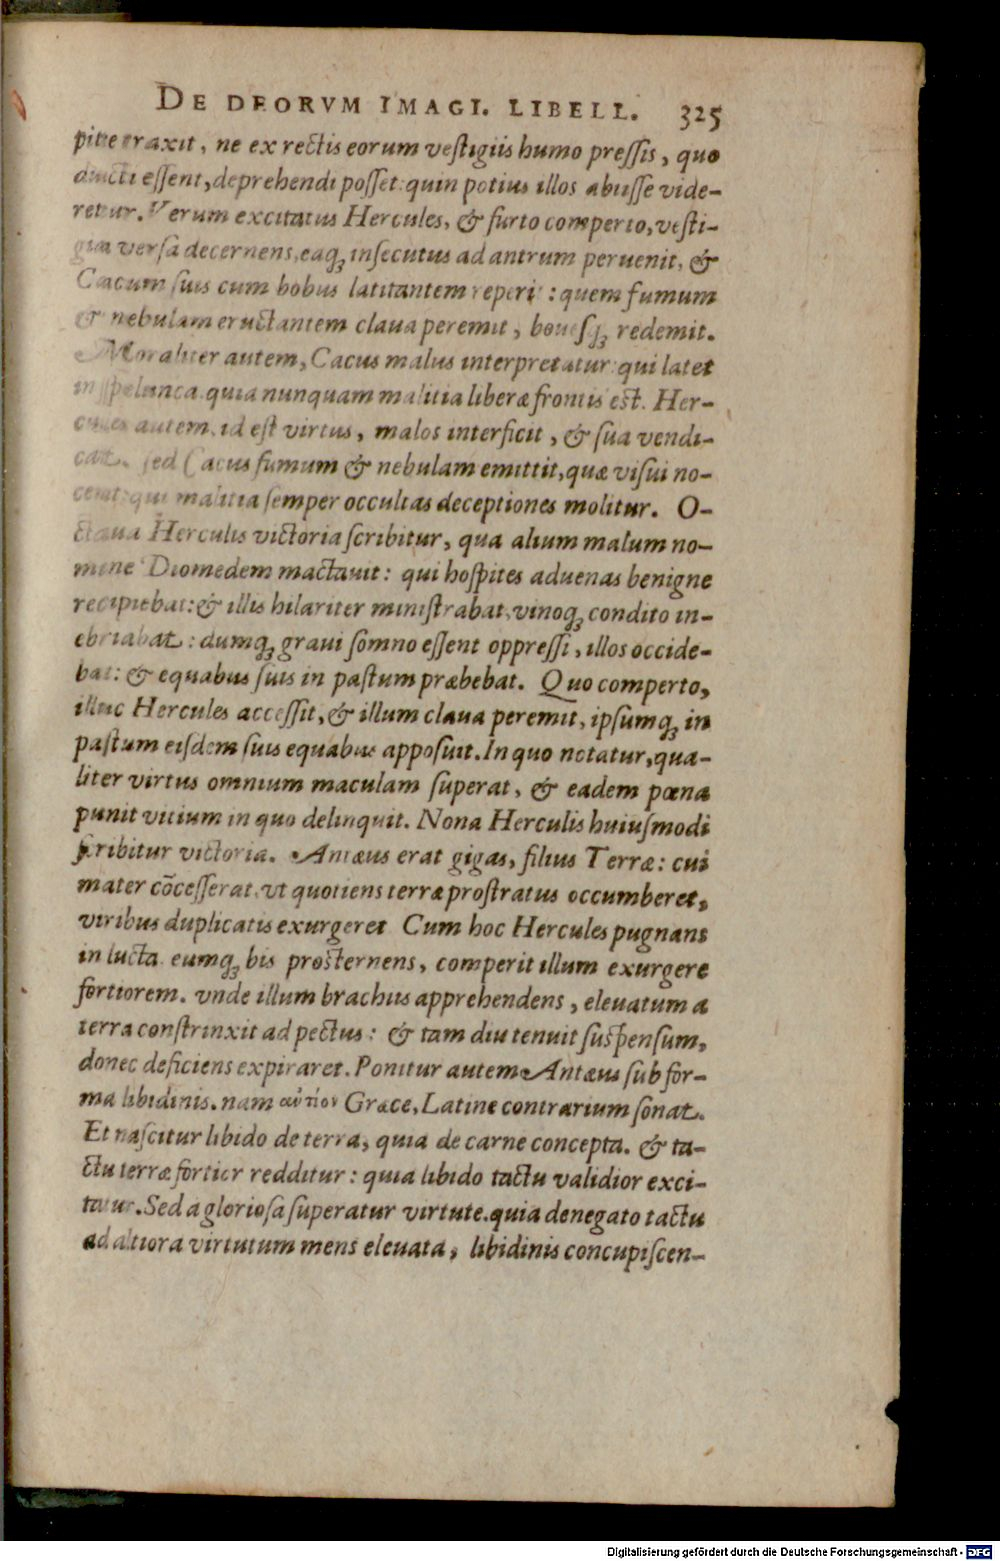 DE DEORVM IMAGI. LIBELL. 325
pite traxit, ne ex rectis eorum veſtigiis humo preſſis, quo
ducti eſſent, deprehendi poſſet: quin potius illos abiiſſe vide-
retur. Verum excitatus Hercules, & furto comperto, veſti-
gia verſa decernens, eaqꝫ inſecutus ad antrum peruenit, &
Cacum ſuis cum bobus latitantem reperit: quem fumum
& nebulam eructantem claua peremit, boueſqꝫ redemit.
Moraliter autem, Cacus malus interpretatur: qui latet
in ſpelunca. quia nunquam malitia liberæ frontis eſt. Her-
cules autem, id eſt virtus, malos interficit, & ſua vendi-
cat. ſed Cacus fumum & nebulam emittit, quæ viſui no-
cent: qui malitia ſemper occultas deceptiones molitur. O-
ctaua Herculis victoria ſcribitur, qua alium malum no-
mine Diomedem mactauit: qui hoſpites aduenas benigne
recipiebat: & illis hilariter miniſtrabat, vinoqꝫ condito in-
ebriabat: dumqꝫ graui ſomno eſſent oppreſſi, illos occide-
bat: & equabus ſuis in paſtum præbebat. Quo comperto,
illuc Hercules acceſſit, & illum claua peremit, ipſumqꝫ in
paſtum eiſdem ſuis equabus appoſuit. In quo notatur, qua-
liter virtus omnium maculam ſuperat, & eadem pœna
punit vitium in quo delinquit. Nona Herculis huiuſmodi
ſcribitur victoria. Antæus erat gigas, filius Terræ: cui
mater cõceſſerat, vt quotiens terræ proſtratus occumberet,
viribus duplicatis exurgeret Cum hoc Hercules pugnans
in lucta eumqꝫ bis proſternens, comperit illum exurgere
fortiorem. vnde illum brachiis apprehendens, eleuatum a
terra conſtrinxit ad pectus: & tam diu tenuit ſuſpenſum,
donec deficiens expiraret. Ponitur autem Antæus ſub for-
ma libidinis. nam αὐτίον Græce, Latine contrarium ſonat.
Et naſcitur libido de terra, quia de carne concepta. & ta-
ctu terræ fortior redditur: quia libido tactu validior exci-
tatur. Sed a glorioſa ſuperatur virtute. quia denegato tactu
ad altiora virtutum mens eleuata, libidinis concupiſcen-
Digitalisierung gefördert durch die Deutsche Forschungsgemeinschaft - DFG